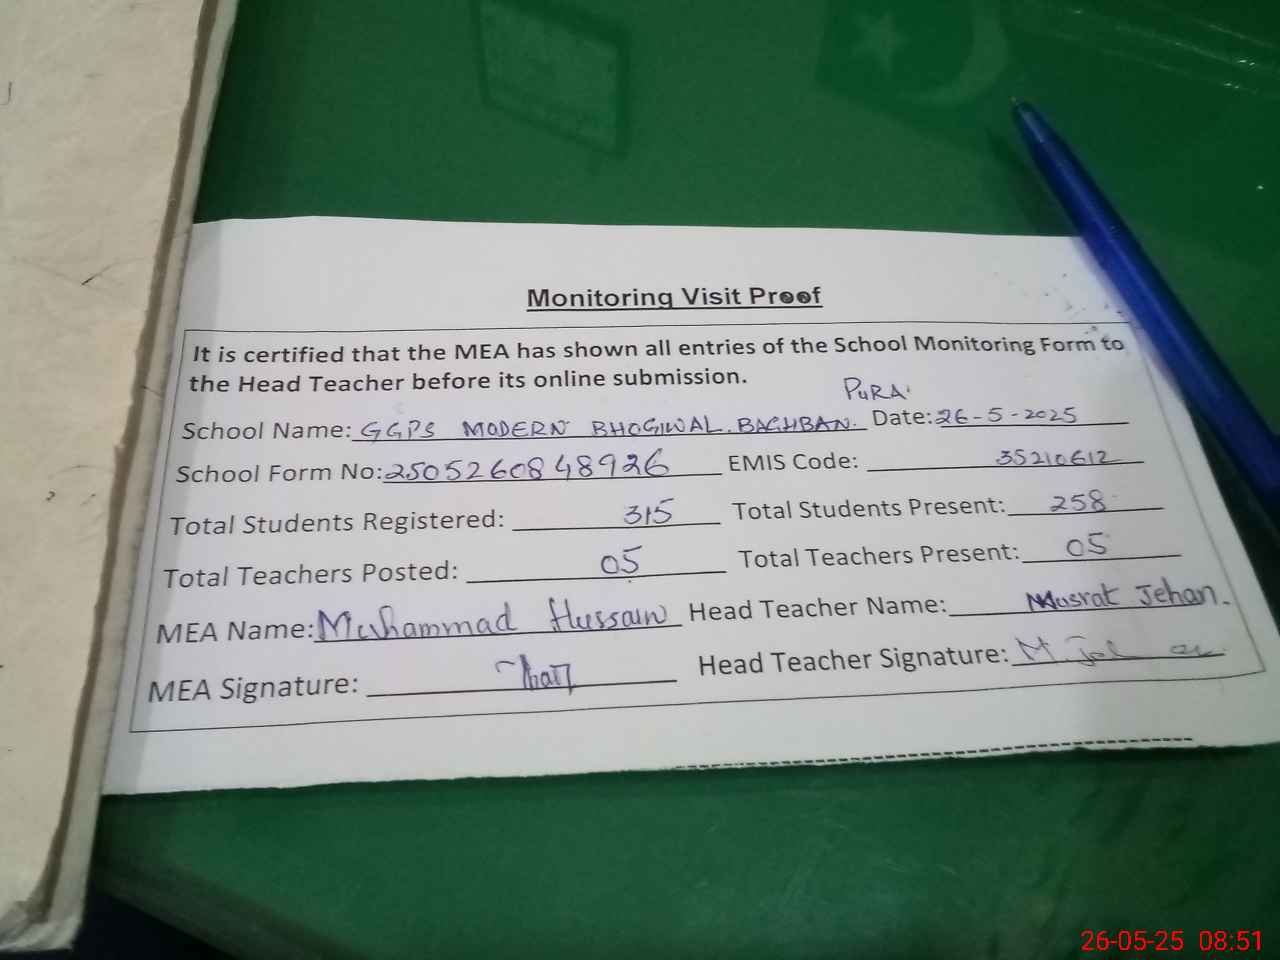 Monitoring Visit Proof
It is certified that the MEA has shown all entries of the School Monitoring Form to
the Head Teacher before its online submission.
PURA.
School Name: GGPS MODERN BHOGIWAL. BAGHBAN. Date: 26-5-2025
School Form No: 2505260848926 EMIS Code: 35210612
Total Students Registered: 315 Total Students Present: 258
Total Teachers Posted: 05 Total Teachers Present: 05
MEA Name: Muhammad Hussain Head Teacher Name: Musrat Jehan.
MEA Signature: Head Teacher Signature:
26-05-25 08:51